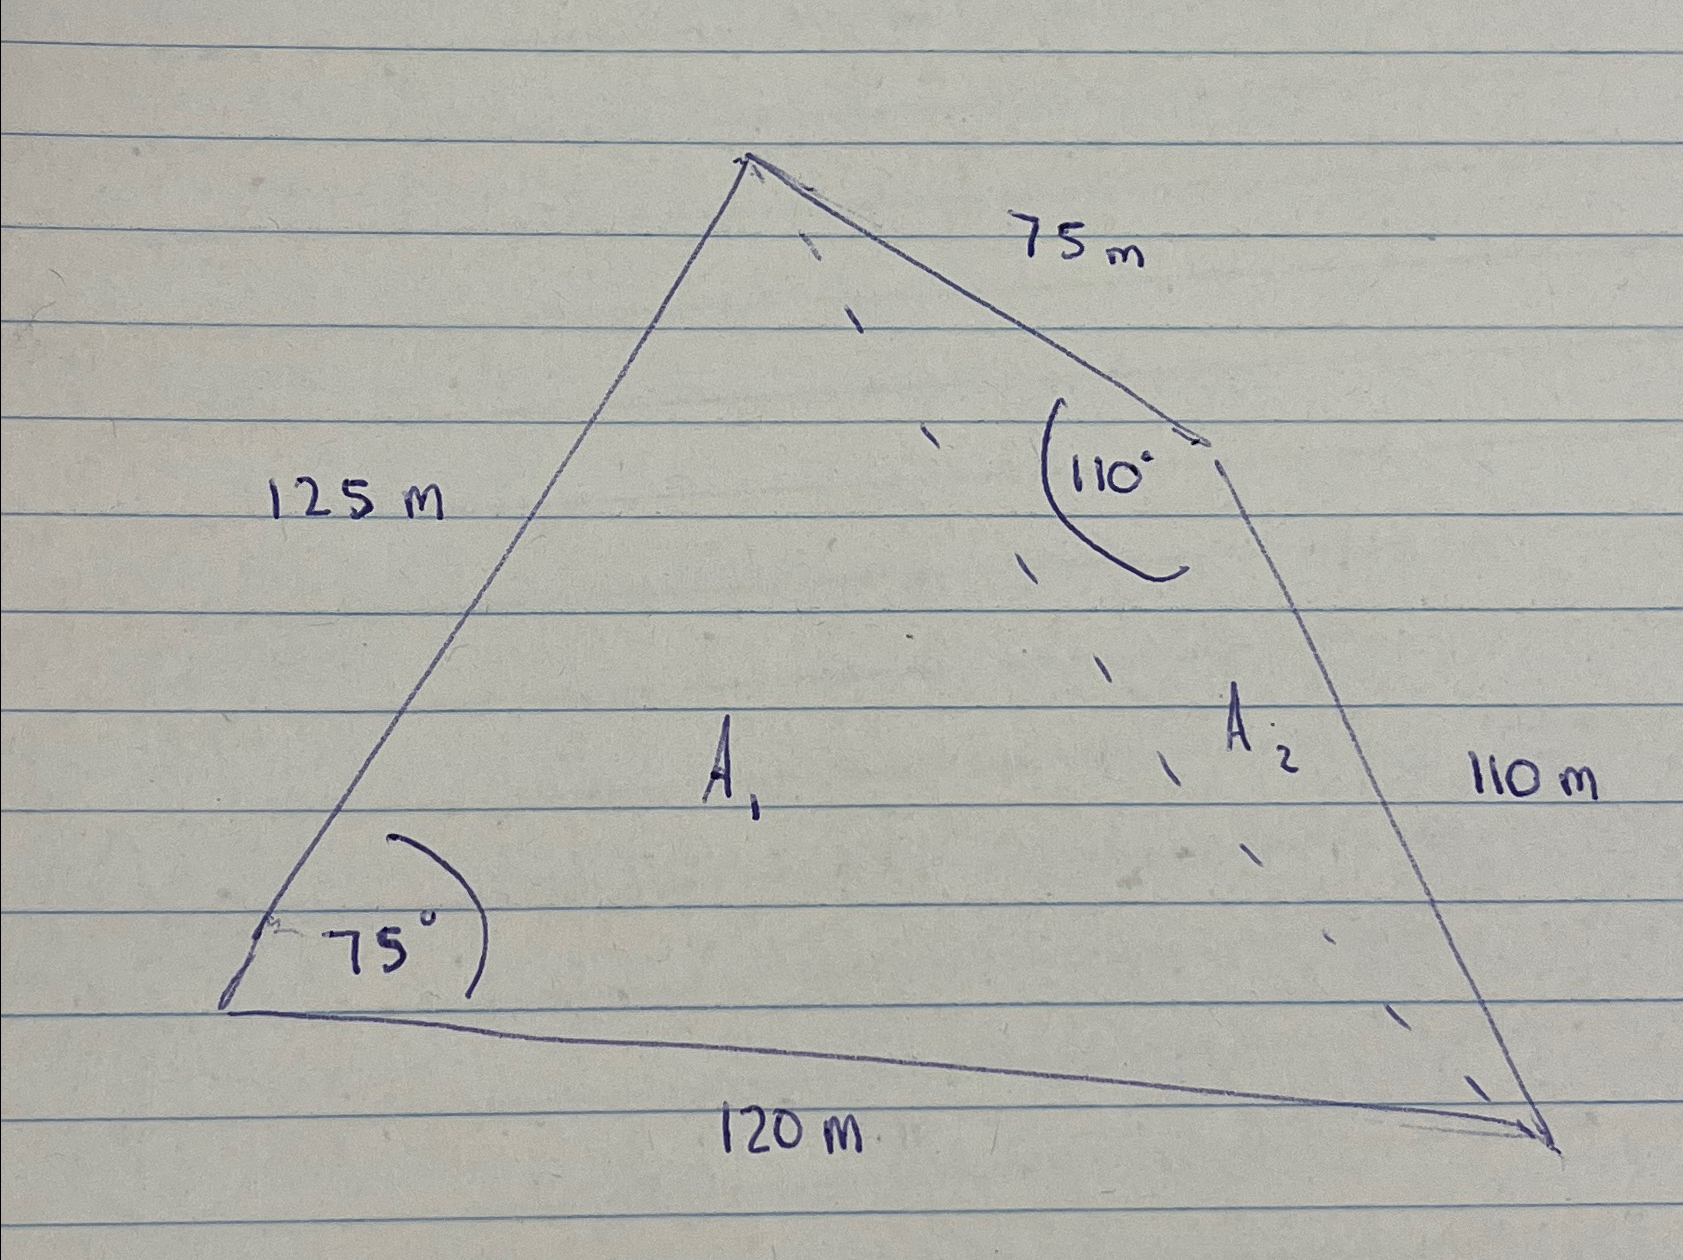 75 m
125 m
110°
A₁
A₂
110 m
75°
120 m